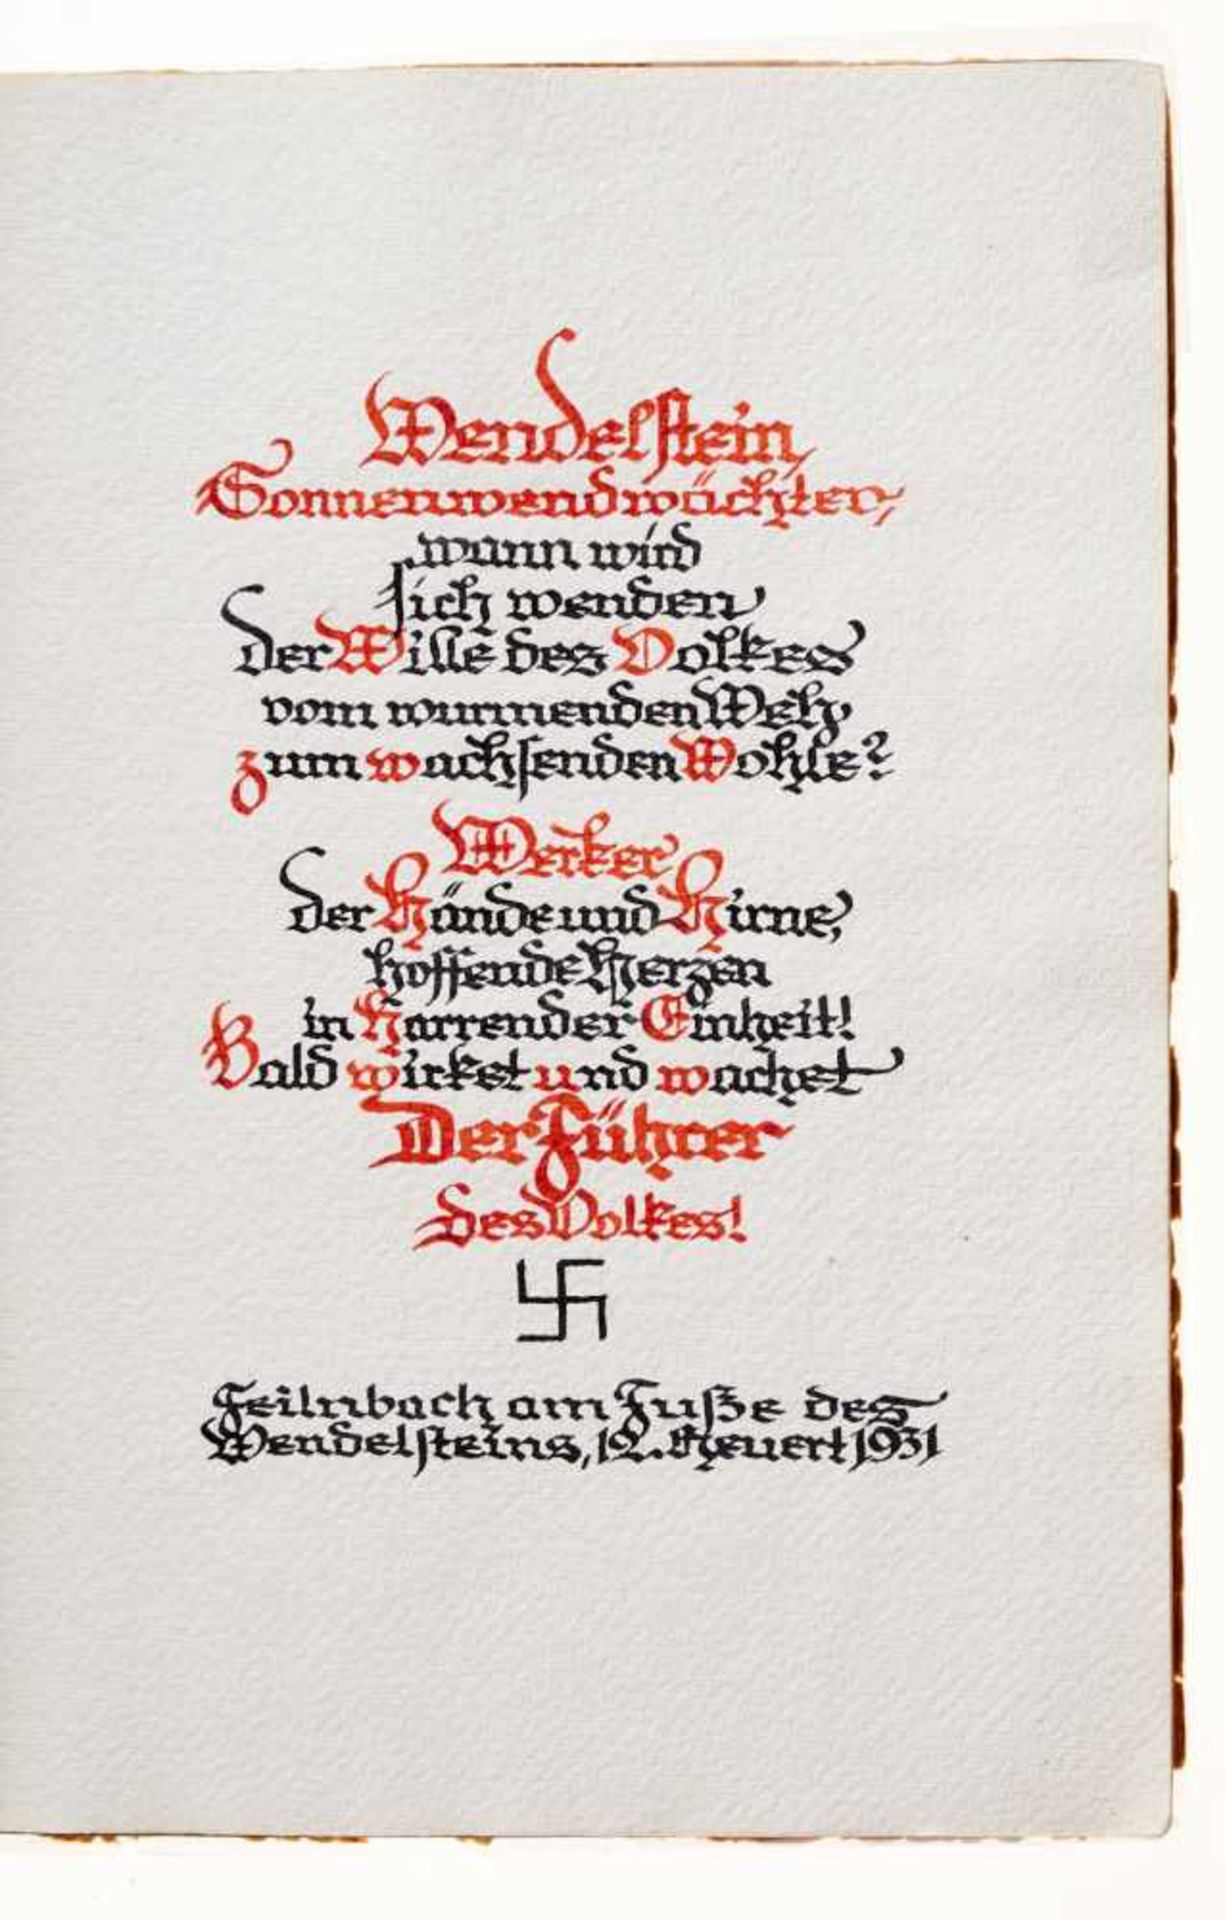 Wendelstein,
Sonnenwendwächter,
wann wird
sich wenden
der Wille des Volkes
vom wurmenden Weh
zum wachsenden Wohle?
Werker
der Hände und Hirne,
hoffende Herzen
in harrender Einheit!
Bald wirket und wachet
Der Führer
des Volkes!
卐
Feilnbach am Fuße des
Wendelsteins, 12. Heuert 1931